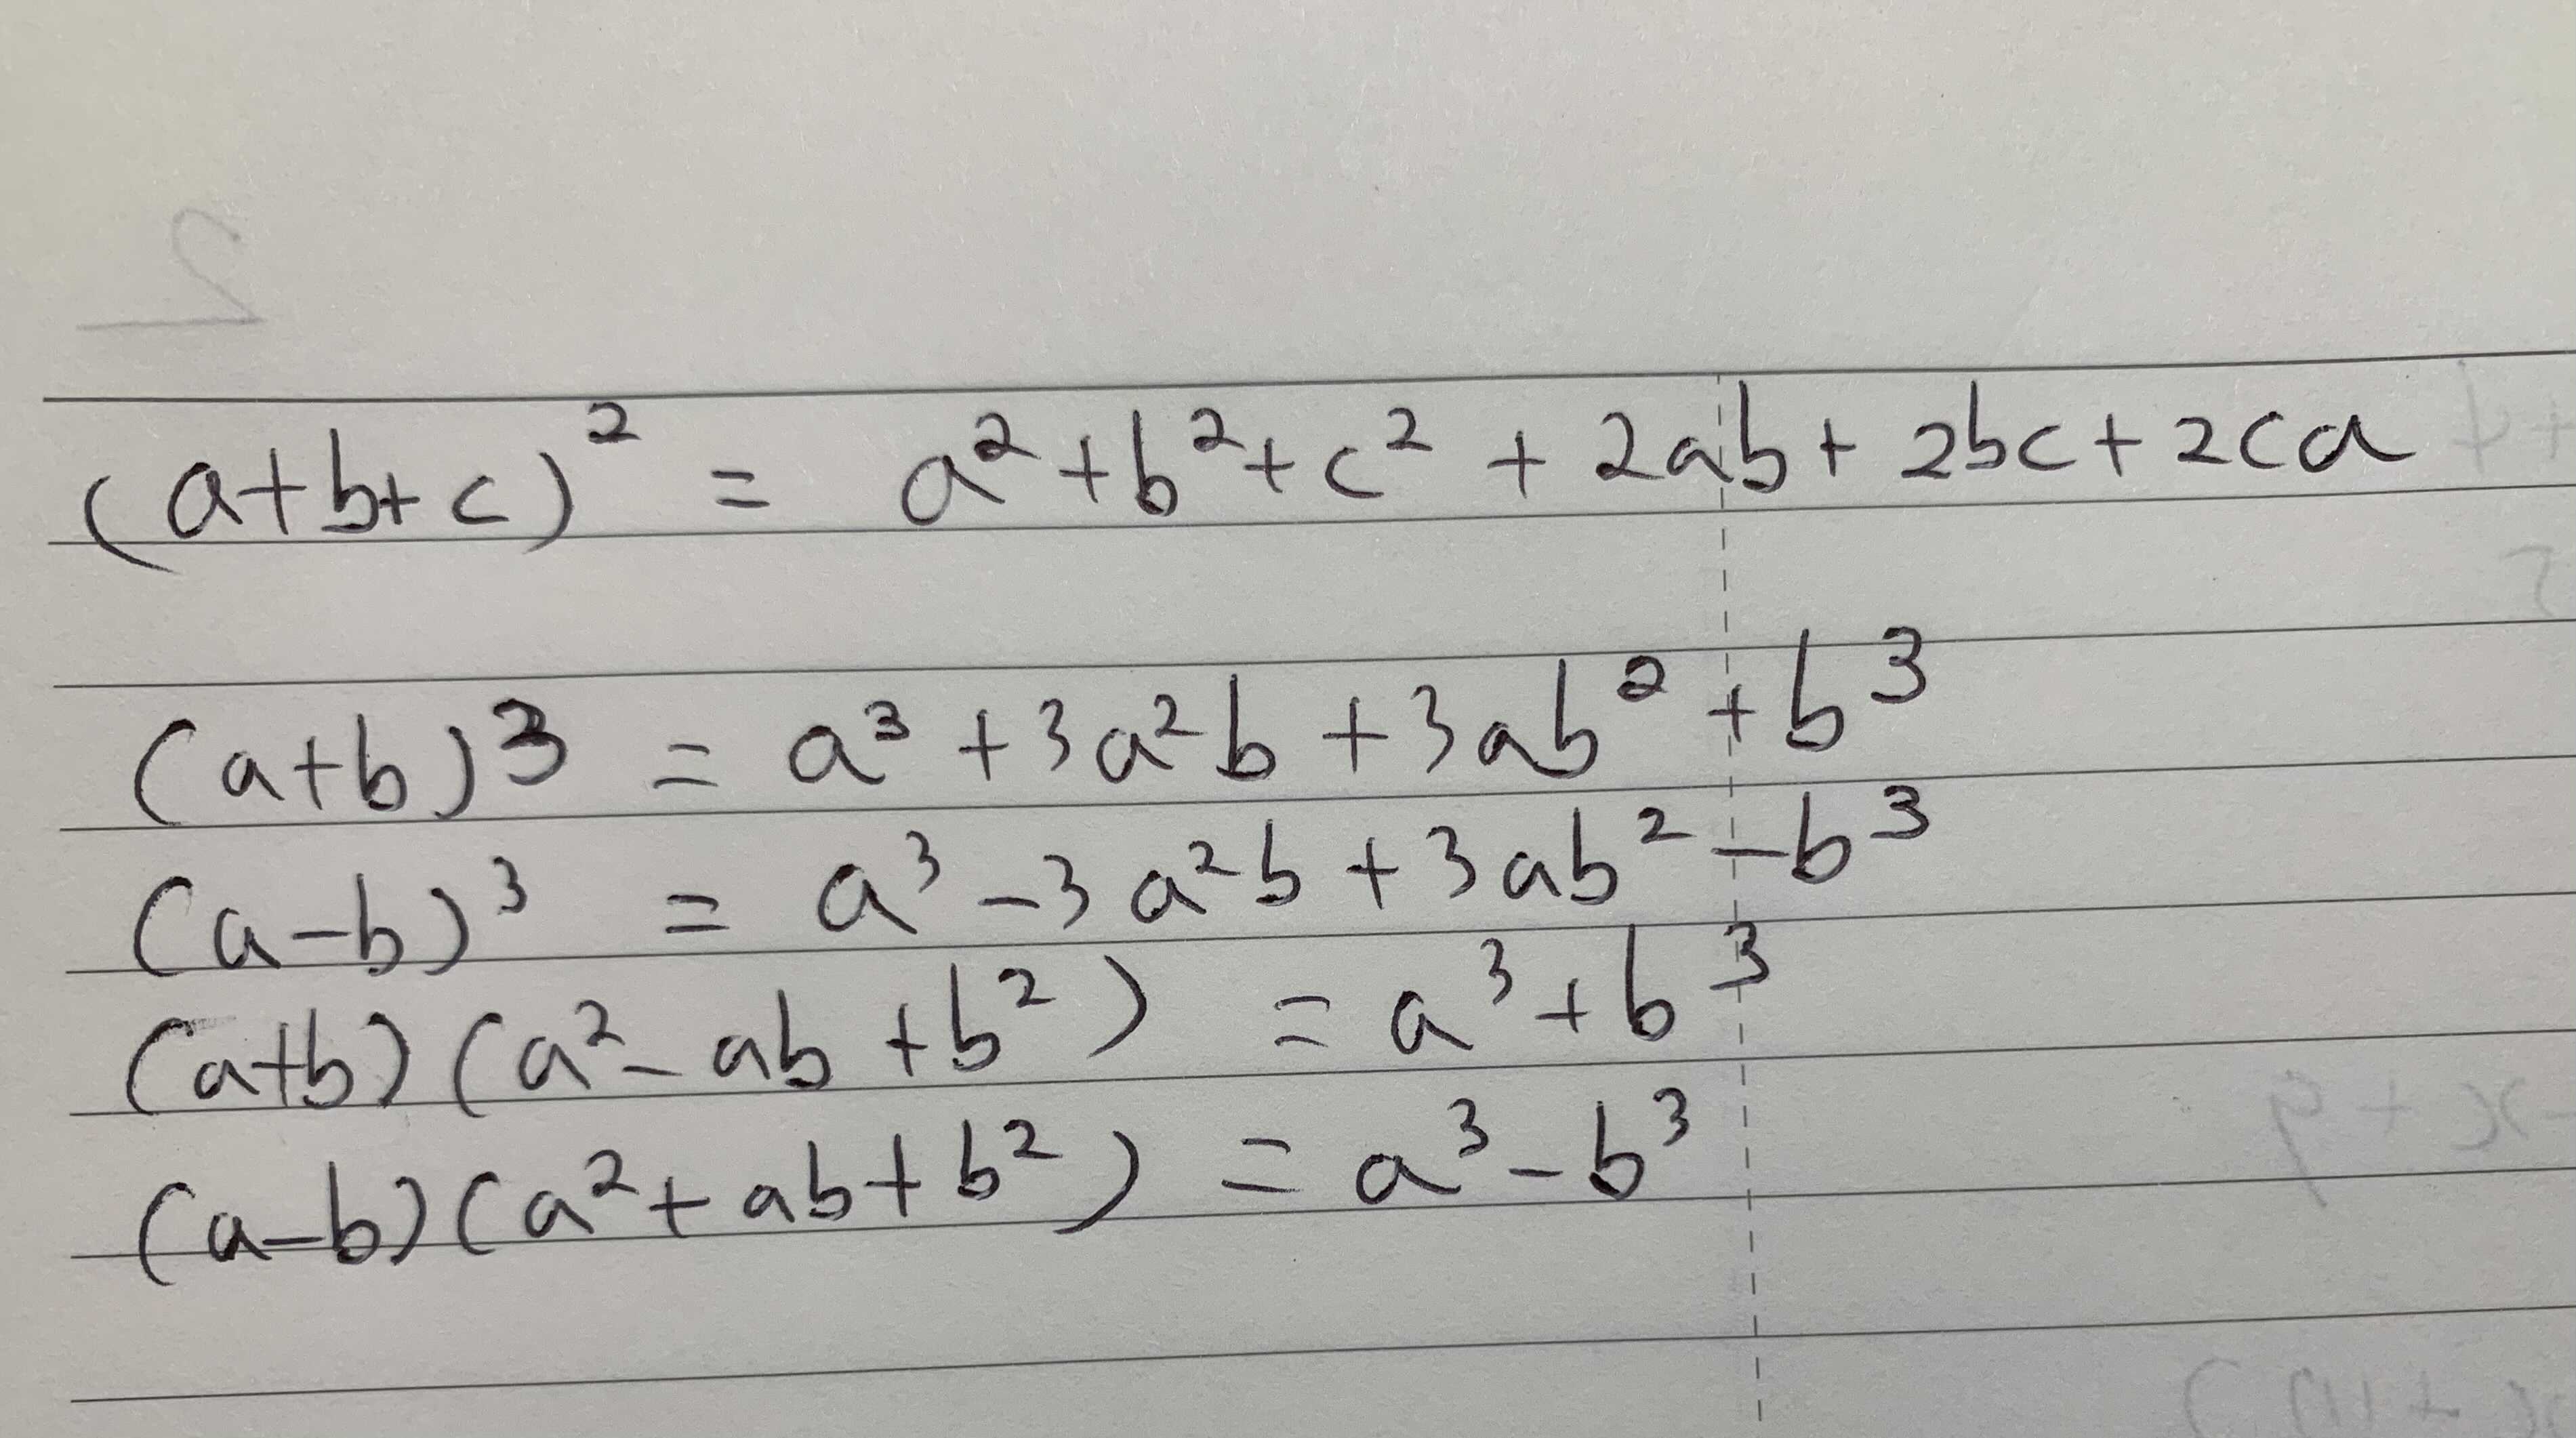 (a+b+c)² = a²+b²+c² + 2ab + 2bc + 2ca
(a+b)³ = a³ + 3a²b + 3ab² + b³
(a-b)³ = a³ - 3a²b + 3ab² - b³
(a+b)(a² - ab + b²) = a³ + b³
(a-b)(a² + ab + b²) = a³ - b³